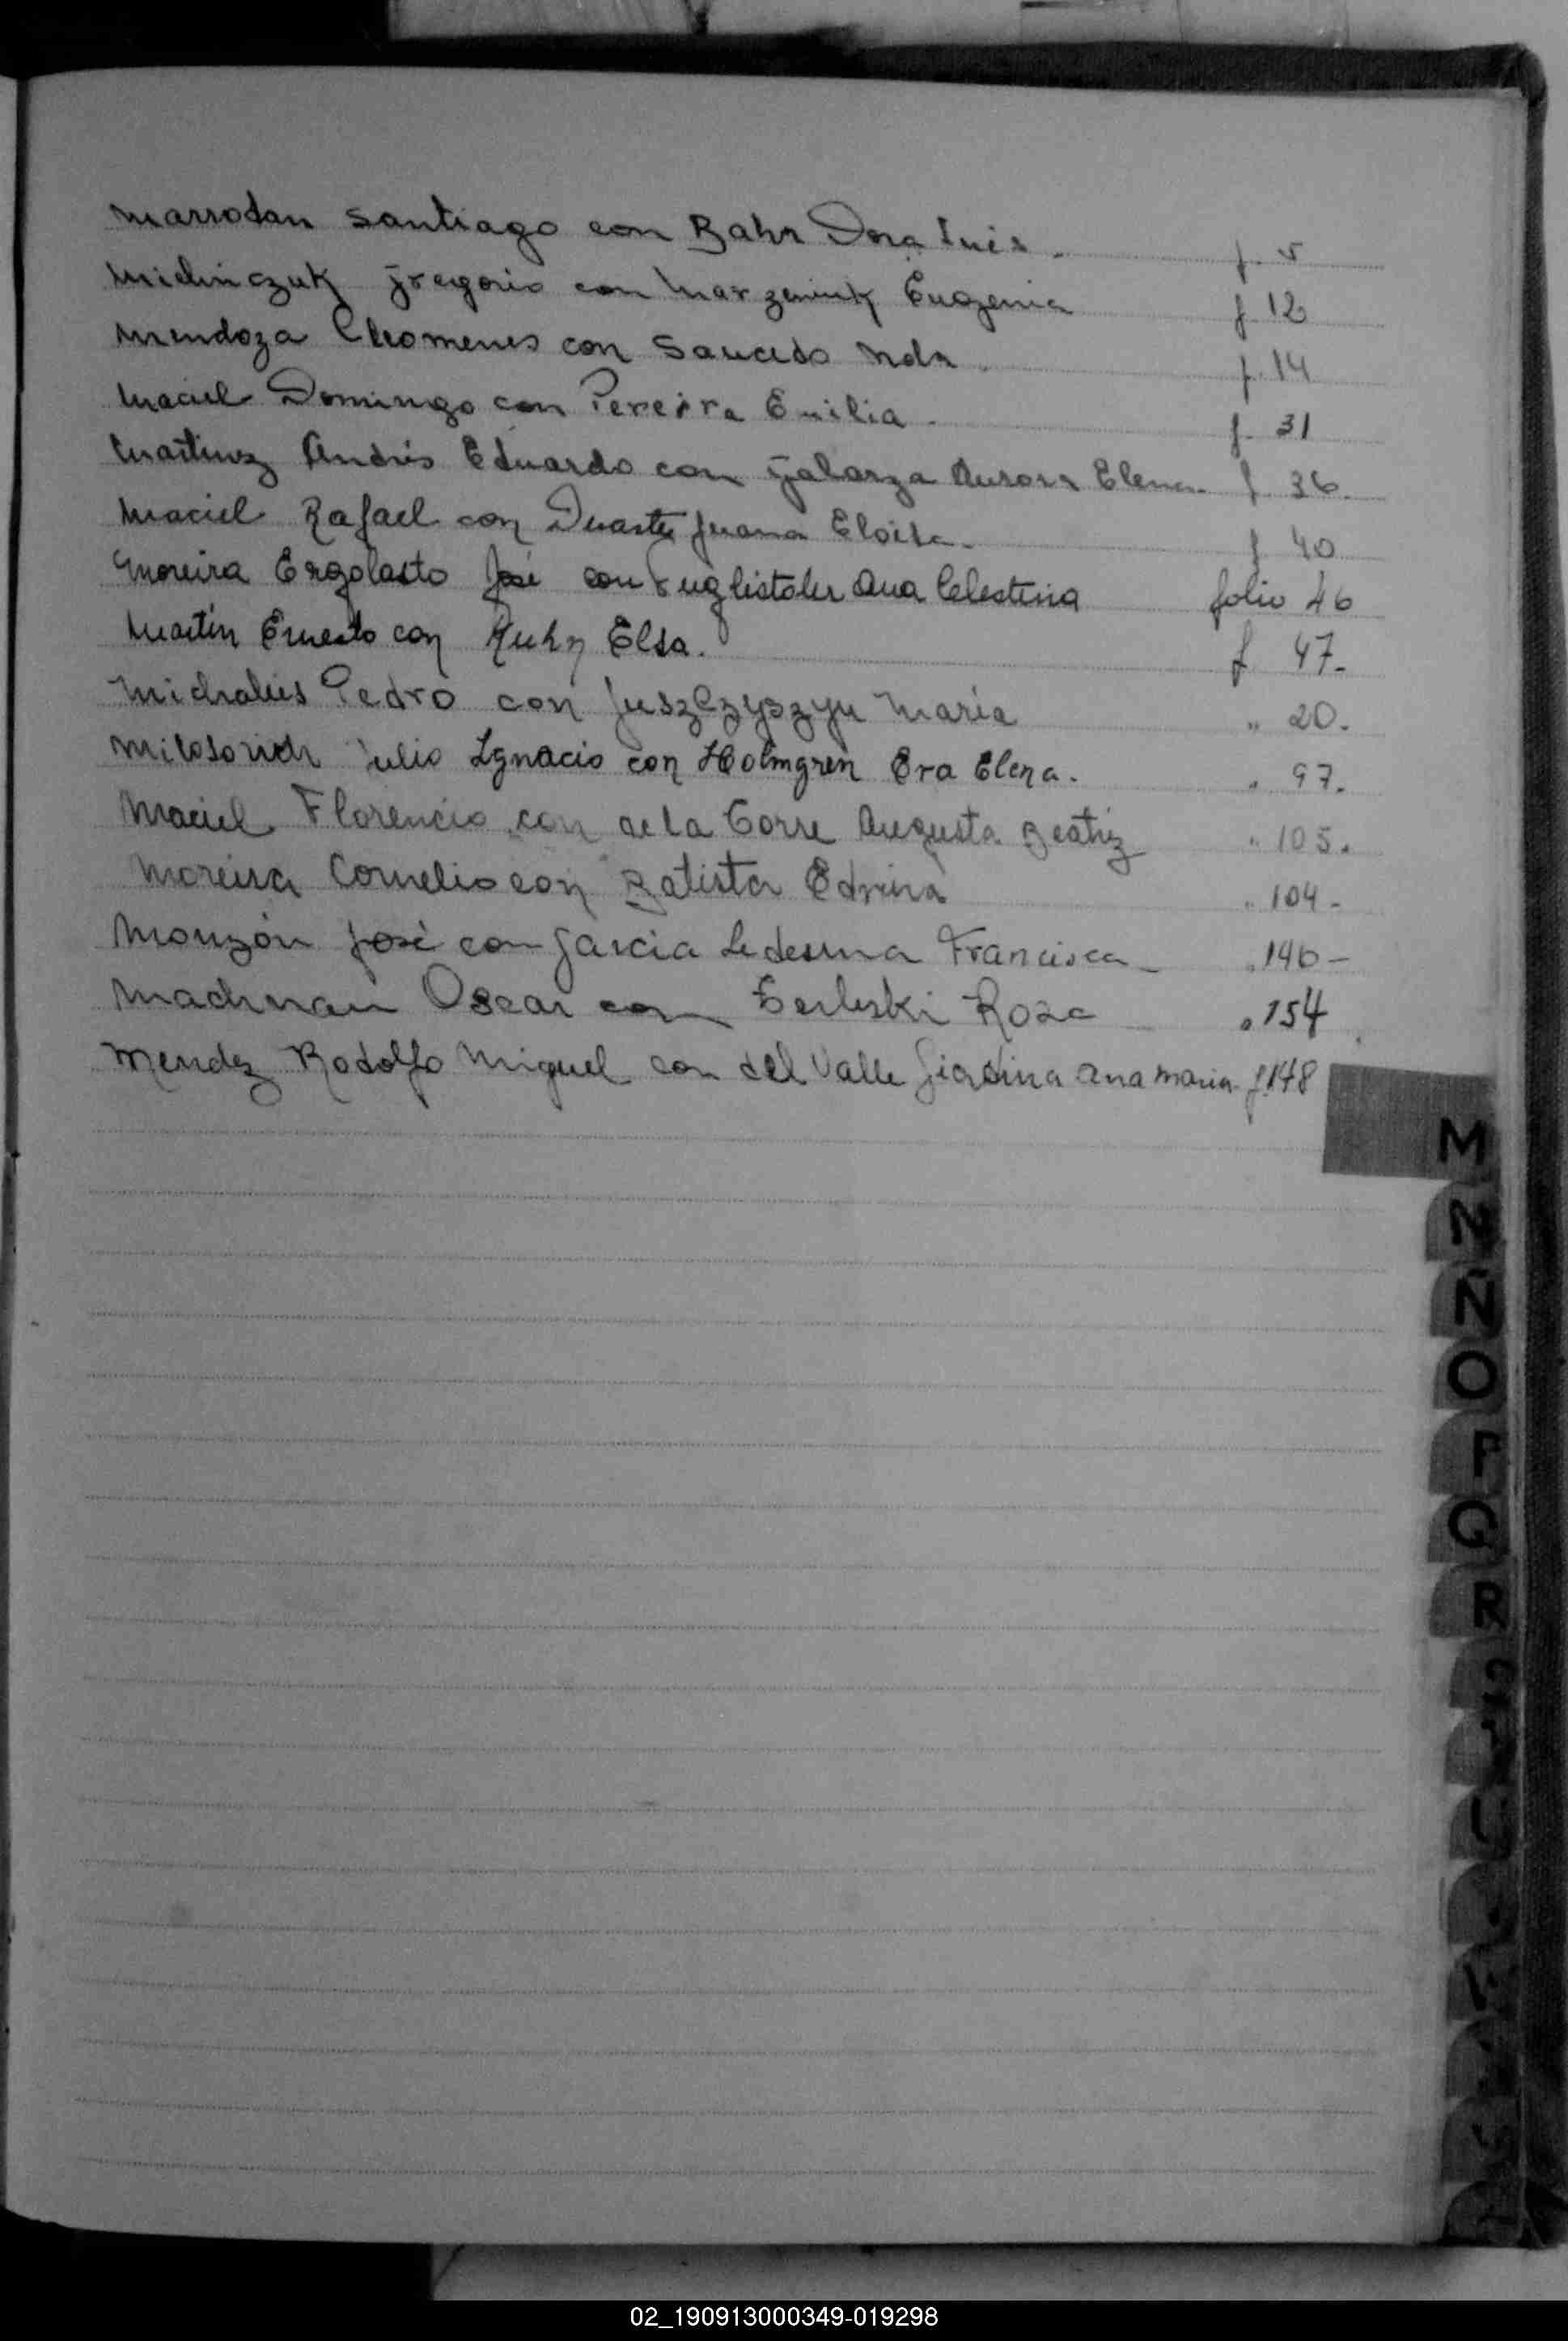 Marrodan Santiago con Bahr Dora Inés. f. 5
Gregorio con Eugenia f. 12
Mendoza Cleomenes con Saucedo f. 14
Maciel Domingo con Pereira Emilia. f. 31
Martinez Andrés Eduardo con Galarza Aurora Elena. f. 36.
Maciel Rafael con Duarte Juana Eloisa. f 40
Moreira Ergolasto José con Ana Celestina folio 46
Martin Ernesto con Kuhn Elsa. f 47.
Pedro con Juszczyszyn Maria " 20.
Julio Ignacio con Holmgren Eva Elena. " 97.
Maciel Florencio con de la Torre Augusta Beatriz " 105.
Moreira Cornelio con Batista " 104.
Monzón José con Garcia Ledesma Francisca " 146 -
Oscar con Rosa " 154
Mendez Rodolfo Miguel con del Valle Ana Maria f. 148
M
N
Ñ
O
P
Q
R
02_190913000349-019298